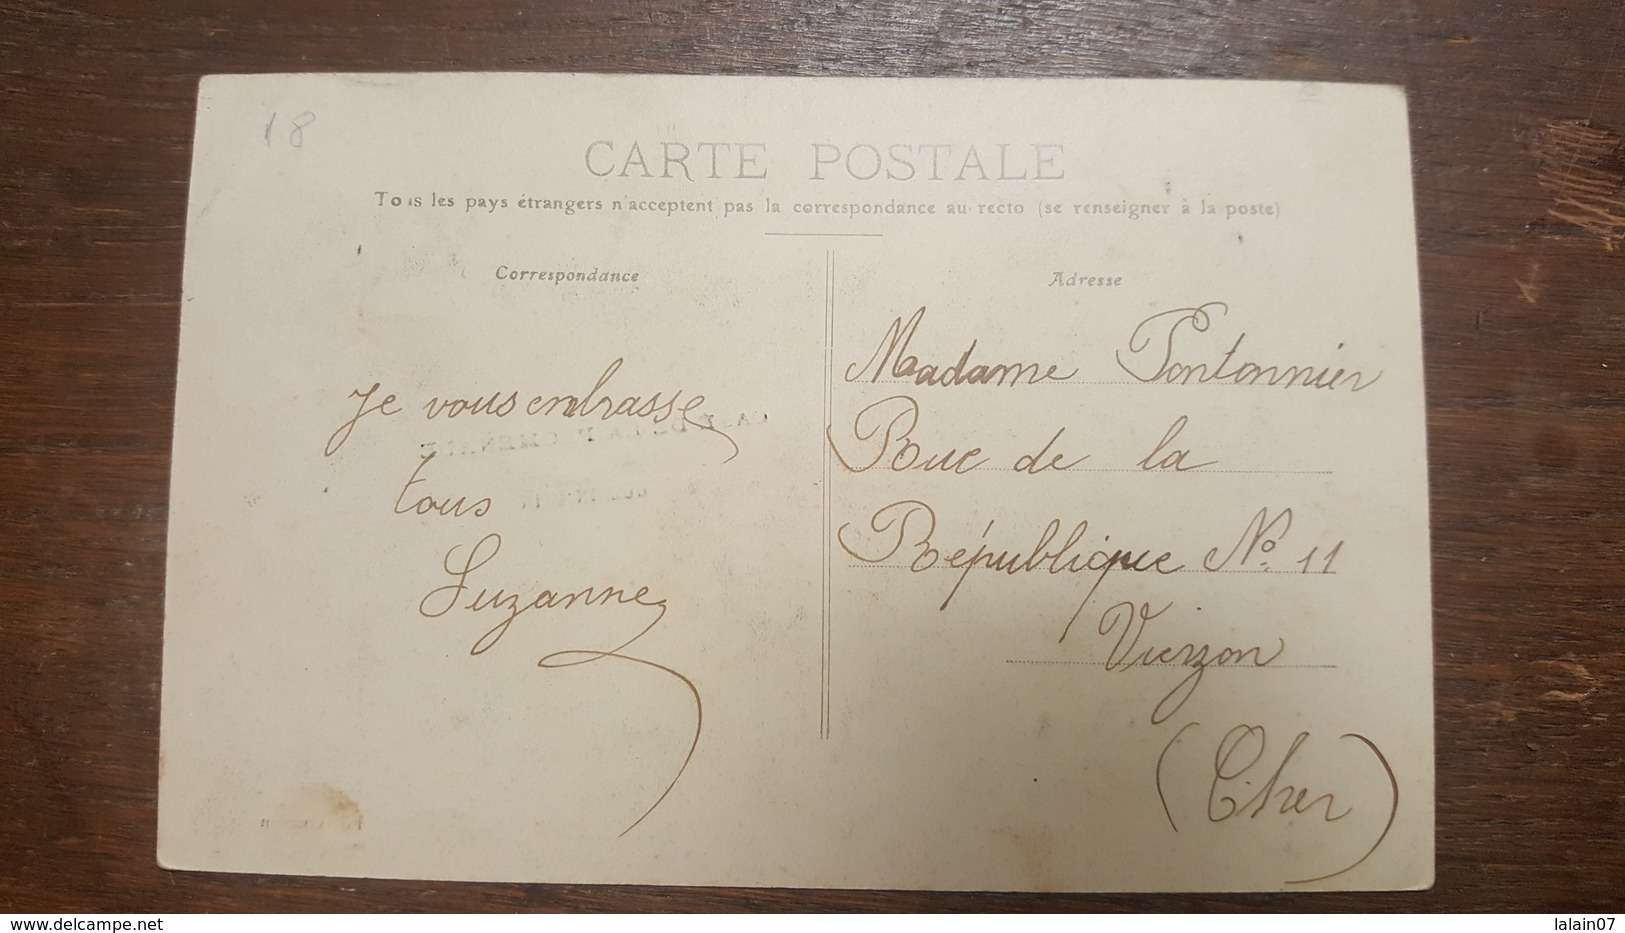 18
CARTE POSTALE
Tous les pays étrangers n'acceptent pas la correspondance au recto (se renseigner à la poste)
Correspondance
Je vous embrasse
tous
Suzanne
Adresse
Madame Pontonnier
Rue de la
République No. 11
Vierzon
(Cher)
delcampe.net
lalain07